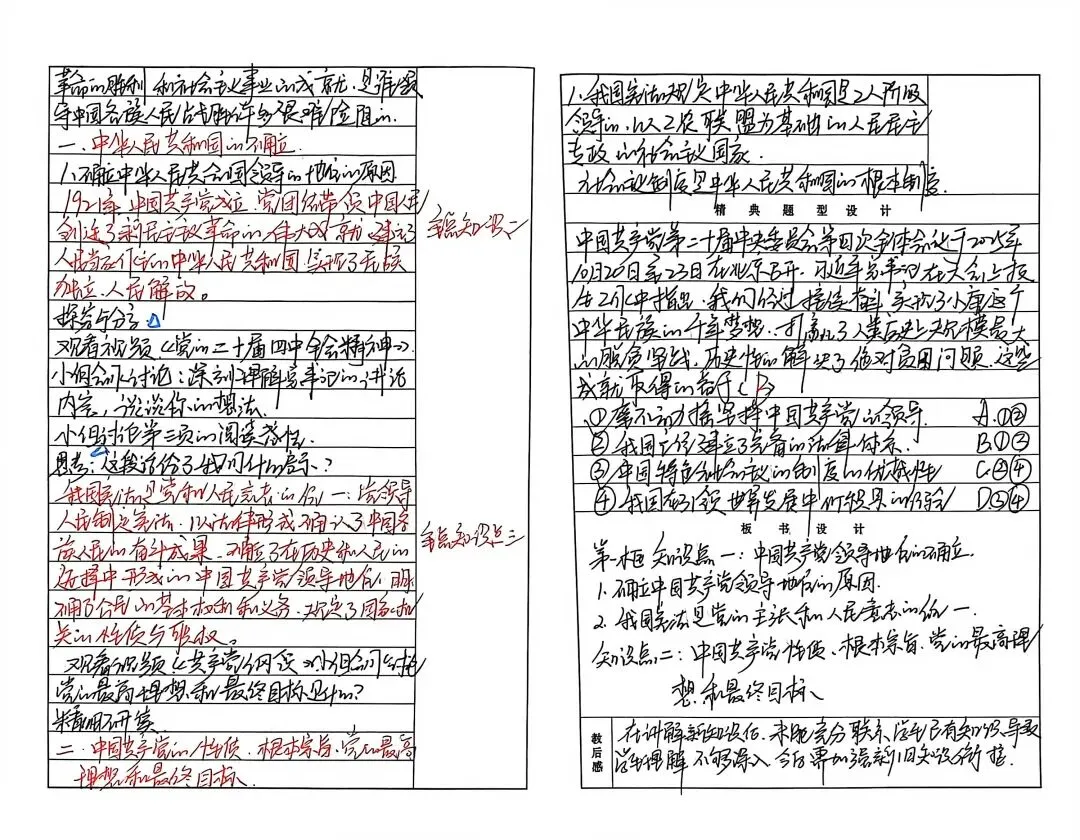 革命的胜利和社会主义事业的成就,是
导中国各族人民战胜许多艰难险阻的.
一.中华人民共和国的确立.
1.确立中华人民共和国领导的地位的原因.
1921年中国共产党成立,党团结带领中国人民
创造了新民主主义革命的伟大成就,建立了
人民当家作主的中华人民共和国,实现了民族
独立、人民解放。
重点知识二
探究与分享
观看视频《党的二十届四中全会精神》.
小组合作讨论:深刻理解总书记的讲话
内容,说说你的想法.
小组讨论第三页的阅读感悟.
思考:这段话给了我们什么启示?
我国宪法是党和人民意志的统一:党领导
人民制定宪法,以法律形式确认了中国各
族人民的奋斗成果,确立了在历史和人民的
选择中形成的中国共产党领导地位,明
确了公民的基本权利和义务,规定了国家机
关的性质与职权。
重点知识点三
观看视频《共产党 》小组合作讨论
党的最高理想和最终目标是什么?
精明研读
二.中国共产党的性质、根本宗旨、党的最高
理想和最终目标.
1.我国宪法规定中华人民共和国是工人阶级
领导的,以工农联盟为基础的人民民主
专政的社会主义国家.
社会主义制度是中华人民共和国的根本制度.
精典题型设计
中国共产党第二十届中央委员会第四次全体会议于2025年
10月20日至23日在北京召开,习近平总书记在大会上报
告工作中指出,我们经过接续奋斗,实现了小康这个
中华民族的千年梦想,打赢了人类历史上规模最大
的脱贫攻坚战,历史性的解决了绝对贫困问题.这些
成就取得的在于(B)
①毫不动摇坚持中国共产党的领导. A.①②
②我国已经建立了完备的法律体系. B.①③
③中国特色社会主义的制度的优越性 C.②④
④我国在引领世界发展中积累的经验 D.③④
板书设计
第一框 知识点一:中国共产党领导地位的确立.
1.确立中国共产党领导地位的原因.
2.我国宪法是党的主张和人民意志的统一.
知识点二:中国共产党性质、根本宗旨、党的最高理
想和最终目标、
教后感
在讲解新知识后,未能充分联系学生已有知识,导致
学生理解不够深入,今后要加强新旧知识衔接.